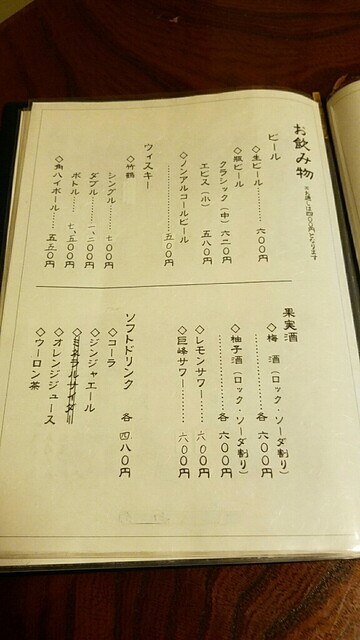 お飲み物
※お通しは四〇〇円となります
ビール
◇生ビール………六〇〇円
◇瓶ビール
クラシック(中) 六二〇円
エビス(小) 五八〇円
◇ノンアルコールビール
………五〇〇円
ウィスキー
◇竹鶴
シングル…七〇〇円
ダブル…一、二〇〇円
ボトル…七、五〇〇円
◇角ハイボール…五五〇円
果実酒
◇梅 酒(ロック・ソーダ割り)
………各 六〇〇円
◇柚子酒(ロック・ソーダ割り)
………各 六〇〇円
◇レモンサワー…六〇〇円
◇巨峰サワー…六〇〇円
ソフトドリンク 各 四八〇円
◇コーラ
◇ジンジャエール
◇ミネラルサイダー
◇オレンジジュース
◇ウーロン茶